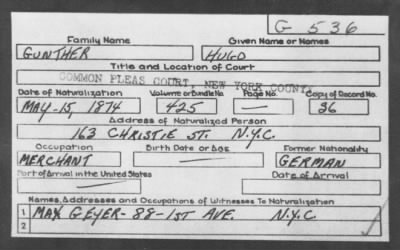 G 536
Family Name Given Name or Names
GUNTHER HUGO
Title and Location of Court
COMMON PLEAS COURT, NEW YORK COUNTY
Date of Naturalization Volume or Bundle No. Page No. Copy of Record No.
MAY-15, 1874 425 — 26
Address of Naturalized Person
163 CHRISTIE ST. N.Y.C.
Occupation Birth Date or Age Former Nationality
MERCHANT — GERMAN
Port of Arrival in the United States Date of Arrival
—
Names, Addresses and Occupations of Witnesses To Naturalization
1 MAX GEYER - 88 - 1ST AVE. N.Y.C
2